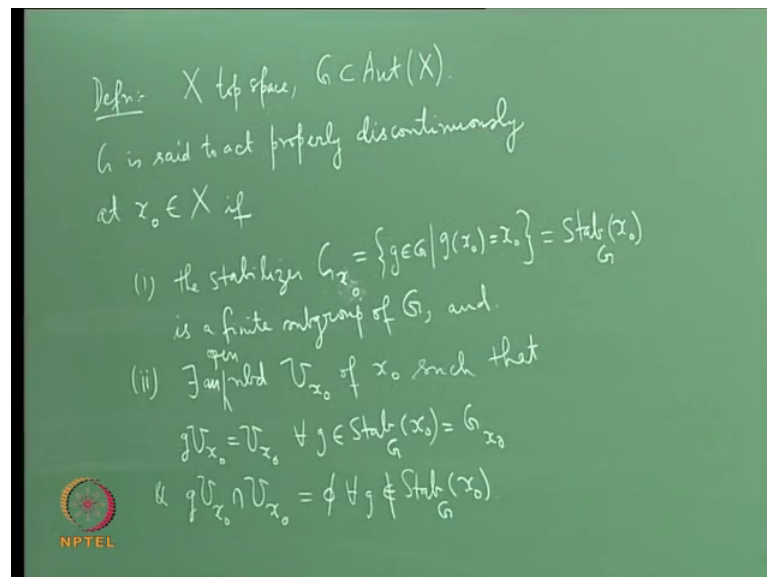 Defn:- X top space, G ⊂ Aut(X).
G is said to act properly discontinuously
at x₀ ∈ X if
(i) the stabilizer G_{x₀} = {g∈G | g(x₀)=x₀} = Stab_G(x₀)
is a finite subgroup of G, and
(ii) ∃ an open nbd U_{x₀} of x₀ such that
gU_{x₀} = U_{x₀} ∀ g ∈ Stab_G(x₀) = G_{x₀}
& gU_{x₀} ∩ U_{x₀} = ϕ ∀ g ∉ Stab_G(x₀).
NPTEL